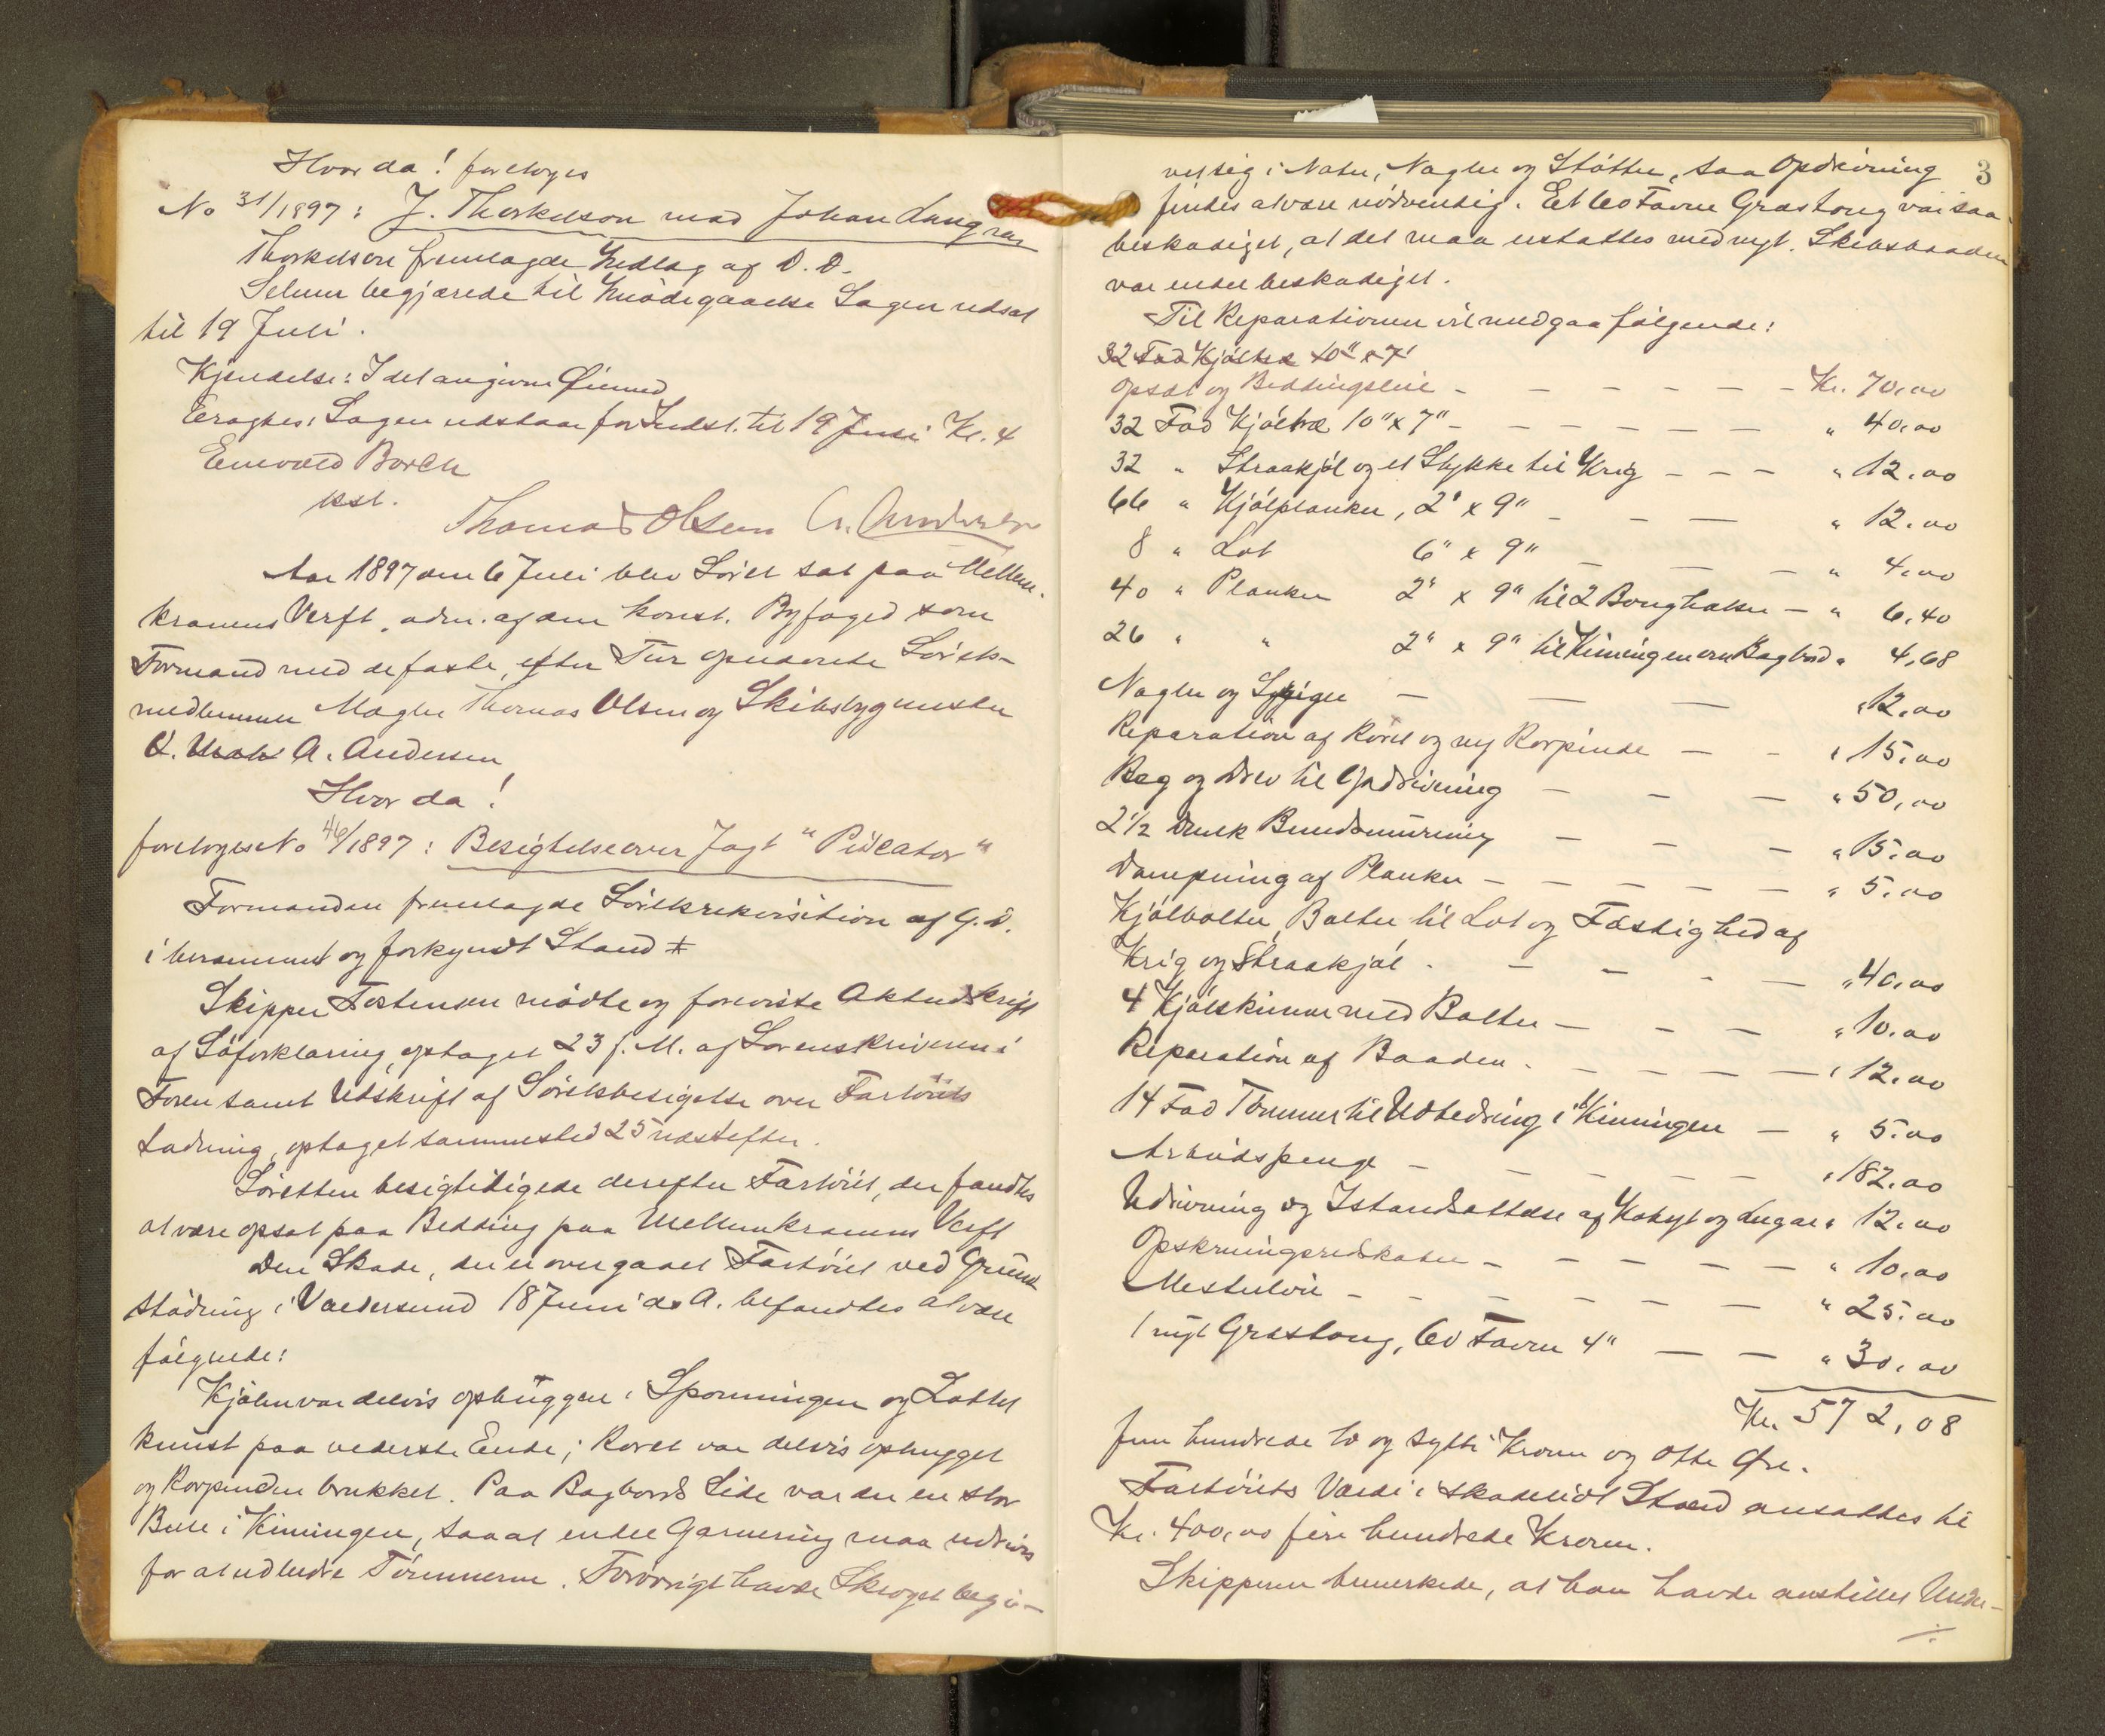 Hvor da! foretoges
No 31/1897: J. Thorkelson mod Johan Langnes
Thorkelson fremlagde Indlæg af D. D.
Selmer begjærede til Imødegaaelse Sagen udsat
til 19 Juli.
Kjendelse: I det angivne Øiemed
Eragtes: Sagen udstaar for Indst. til 19 Juli Kl. 4
Einvald Borch
kst.
Thomas Olsen A. Andersen
Aar 1897 den 6 Juli blev Søret sat paa Mellem-
kranens Verft, adm. af den konst. Byfoged som
Formand med de faste, efter Tur opnævnte Sørets-
medlemmer Mægler Thomas Olsen og Skibsbygmester
A. Andersen
Hvor da!
foretoges No 46/1897: Besigtelse over Jagt "Piscator"
Formanden fremlagde Søretsrekvisition af G. D.
i berammet og forkyndt Stand
Skipper Torstensen mødte og foreviste Aktudskrift
af Søforklaring, optaget 23 f. M. af Sorenskriveren i
Fosen samt Udskrift af Søretsbesigtelse over Fartøiets
Ladning, optaget sammesteds 25 næstefter.
Søretten besigtedigede derefter Fartøiet, der fandtes
at være opsat paa Bedding paa Mellemkranens Verft
Den Skade, der er overgaaet Fartøiet ved Grund-
stødning i Valdersund 18 Juni d. A. befandtes at være
følgende:
Kjølen var delvis ophuggen i Sponningen og Lottet
knust paa nederste Ende; Roret var delvis ophugget
og Rorpinden brukket. Paa Bagbords Side var der en stor
Bule i Kimingen, saa at endel Garnering maa udrives
for at udbedre Tømmerne. Forøvrigt havde Skroget begi-
3
vet sig i Nater, Nagler og Støtter, saa Opdrivning
findes at være nødvendig. Et 60 Favne Græstoug var saa
beskadiget, at det maa erstattes med nyt. Skibsbaaden
var endel beskadiget.
Til Reparationen vil medgaa følgende:
32 Fod Kjøltræ 10" x 7"
Opsæt og Beddingsleie - - - - - - Kr. 70,00
32 Fod Kjøltræ 10" x 7" - - - - - - " 40,00
32 " Straakjøl og et Stykke til Krig - - - " 12,00
66 " Kjølplanker, 2" x 9" - - - " 12,00
8 " Lot 6" x 9" - - - " 4,00
40 " Planker 2" x 9" til 2 Bougtaker - " 6,40
26 " " 2" x 9" til Kimingen om Bagbord " 4,68
Nagler og Spiger - - - " 12,00
Reparation af Roret og ny Rorpinde - - " 15,00
Beg og Drev til Opdrivning - - - " 50,00
2½ Dunk Bundsmurning - - - " 15,00
Dampning af Planker - - - - - " 5,00
Kjølbolter, Bolter til Lot og Fastighed af
Krig og Straakjøl - - - - - " 40,00
4 Kjølskinner med Bolter - - - " 10,00
Reparation af Baaden - - - - - " 12,00
14 Fod Tømmer til Udbedring i Kimingen - " 5,00
Arbeidspenge - - - - - " 182,00
Udrivning og Istandsættelse af Kahyt og Lugar " 12,00
Opskruingsredskaber - - - - - " 10,00
Mesterløn - - - - - - " 25,00
1 nyt Græstoug, 60 Favne 4" - - " 30,00
Kr. 572,08
fem hundrede to og sytti Kroner og otte Øre.
Fartøiets Værdi i skadelidt Stand ansattes til
Kr. 400,00 fire hundrede Kroner.
Skipperen bemerkede, at han havde anstillet Under-
./.